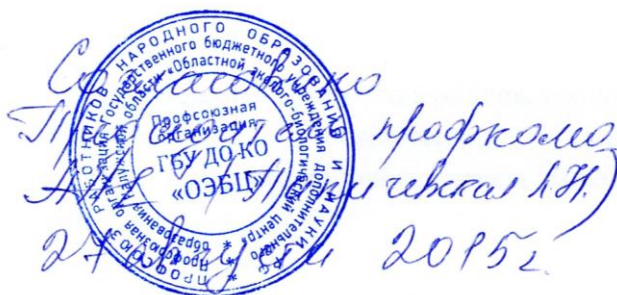 Согласовано
Председатель профкома
27 августа 2015 г.
ПРОФСОЮЗ РАБОТНИКОВ НАРОДНОГО ОБРАЗОВАНИЯ И НАУКИ
Профсоюзная организация Государственного бюджетного учреждения дополнительного образования Калужской области «Областной эколого-биологический центр»
Профсоюзная
организация
ГБУ ДО КО
«ОЭБЦ»